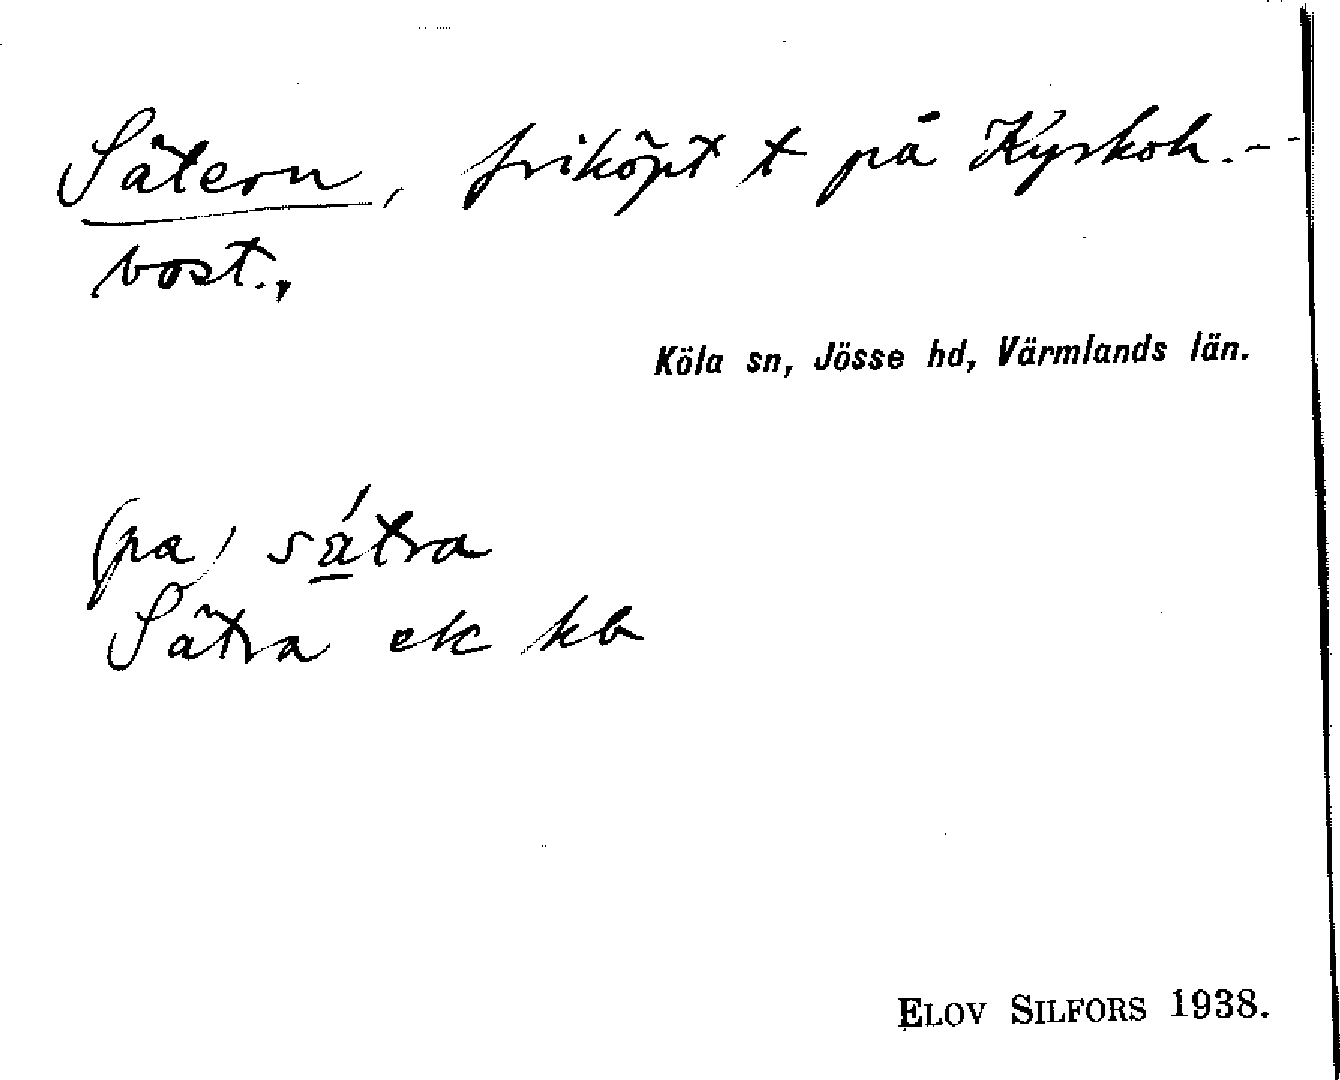 Sätern, friköpt t på Kyrkoh.-
bost.,
Köla sn, Jösse hd, Värmlands län.
(pa) sátra
Sätra ek kb
ELOV SILFORS 1938.